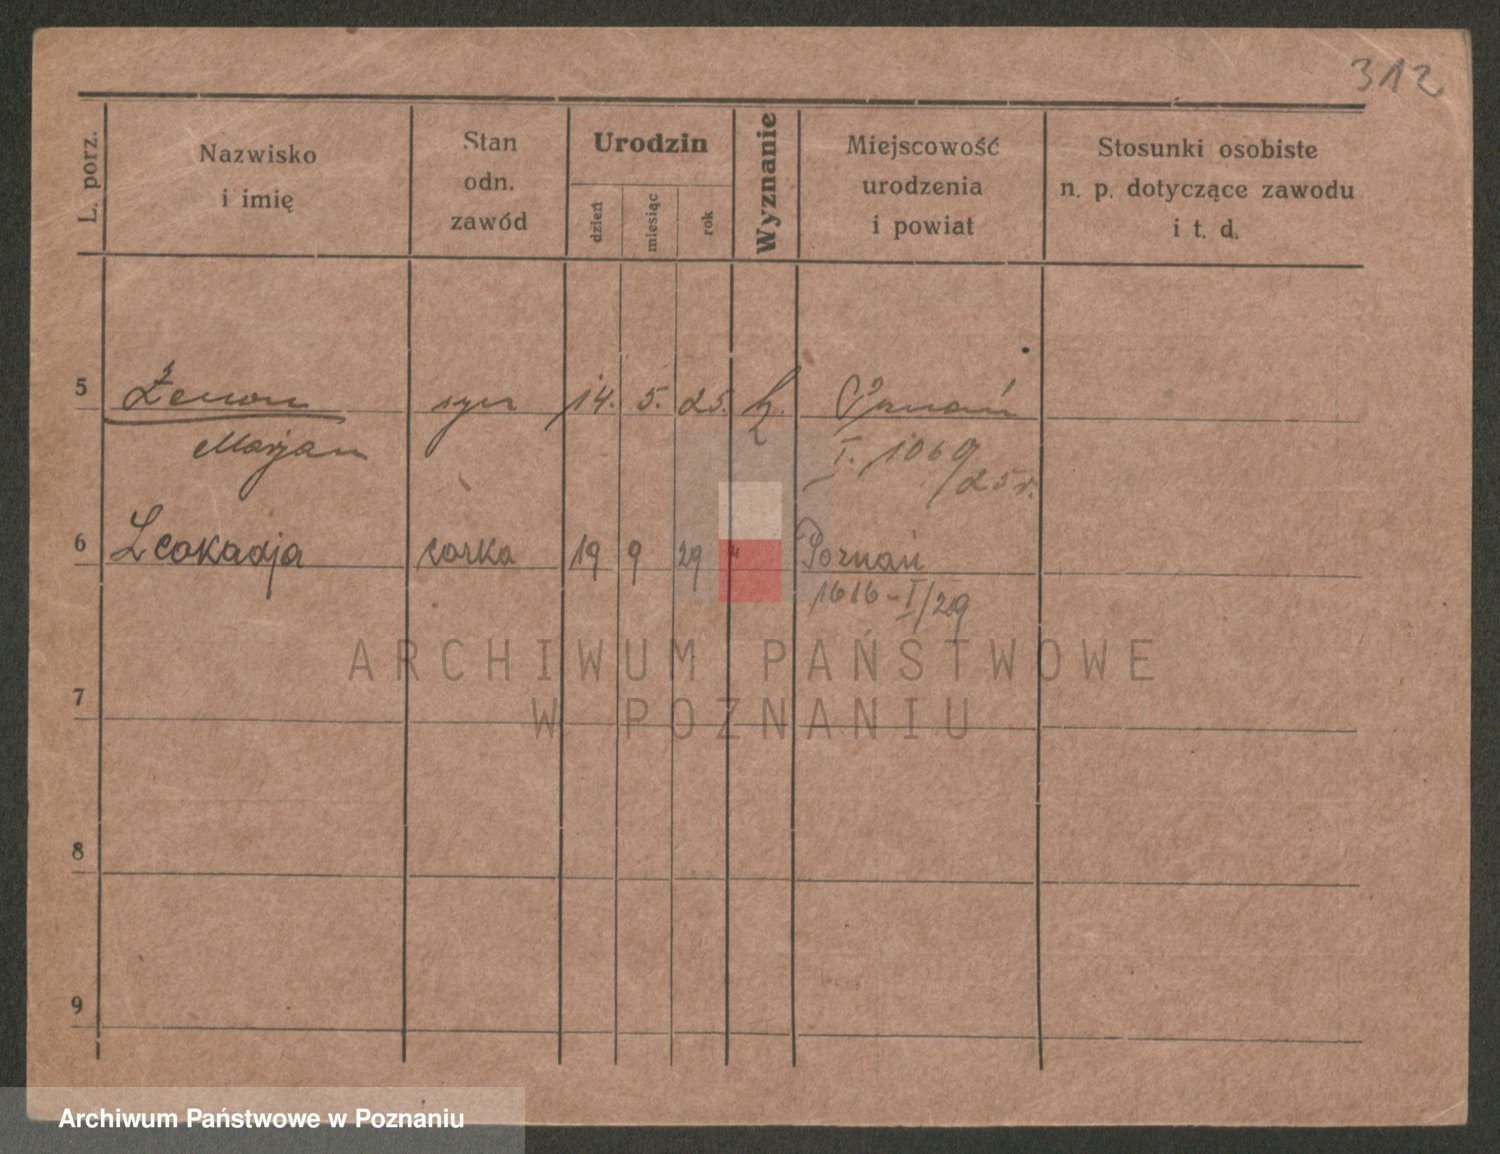 312
L. porz.
Nazwisko
i imię
Stan
odn.
zawód
Urodzin
dzień
miesiąc
rok
Wyznanie
Miejscowość
urodzenia
i powiat
Stosunki osobiste
n. p. dotyczące zawodu
i t. d.
5 Zenon syn 14. 5. 25. k. Poznań
Marjan I. 1060/25 r.
6 Leokadja corka 19 9 29 " Poznań
1616-I/29
7
8
9
ARCHIWUM PAŃSTWOWE
W POZNANIU
Archiwum Państwowe w Poznaniu